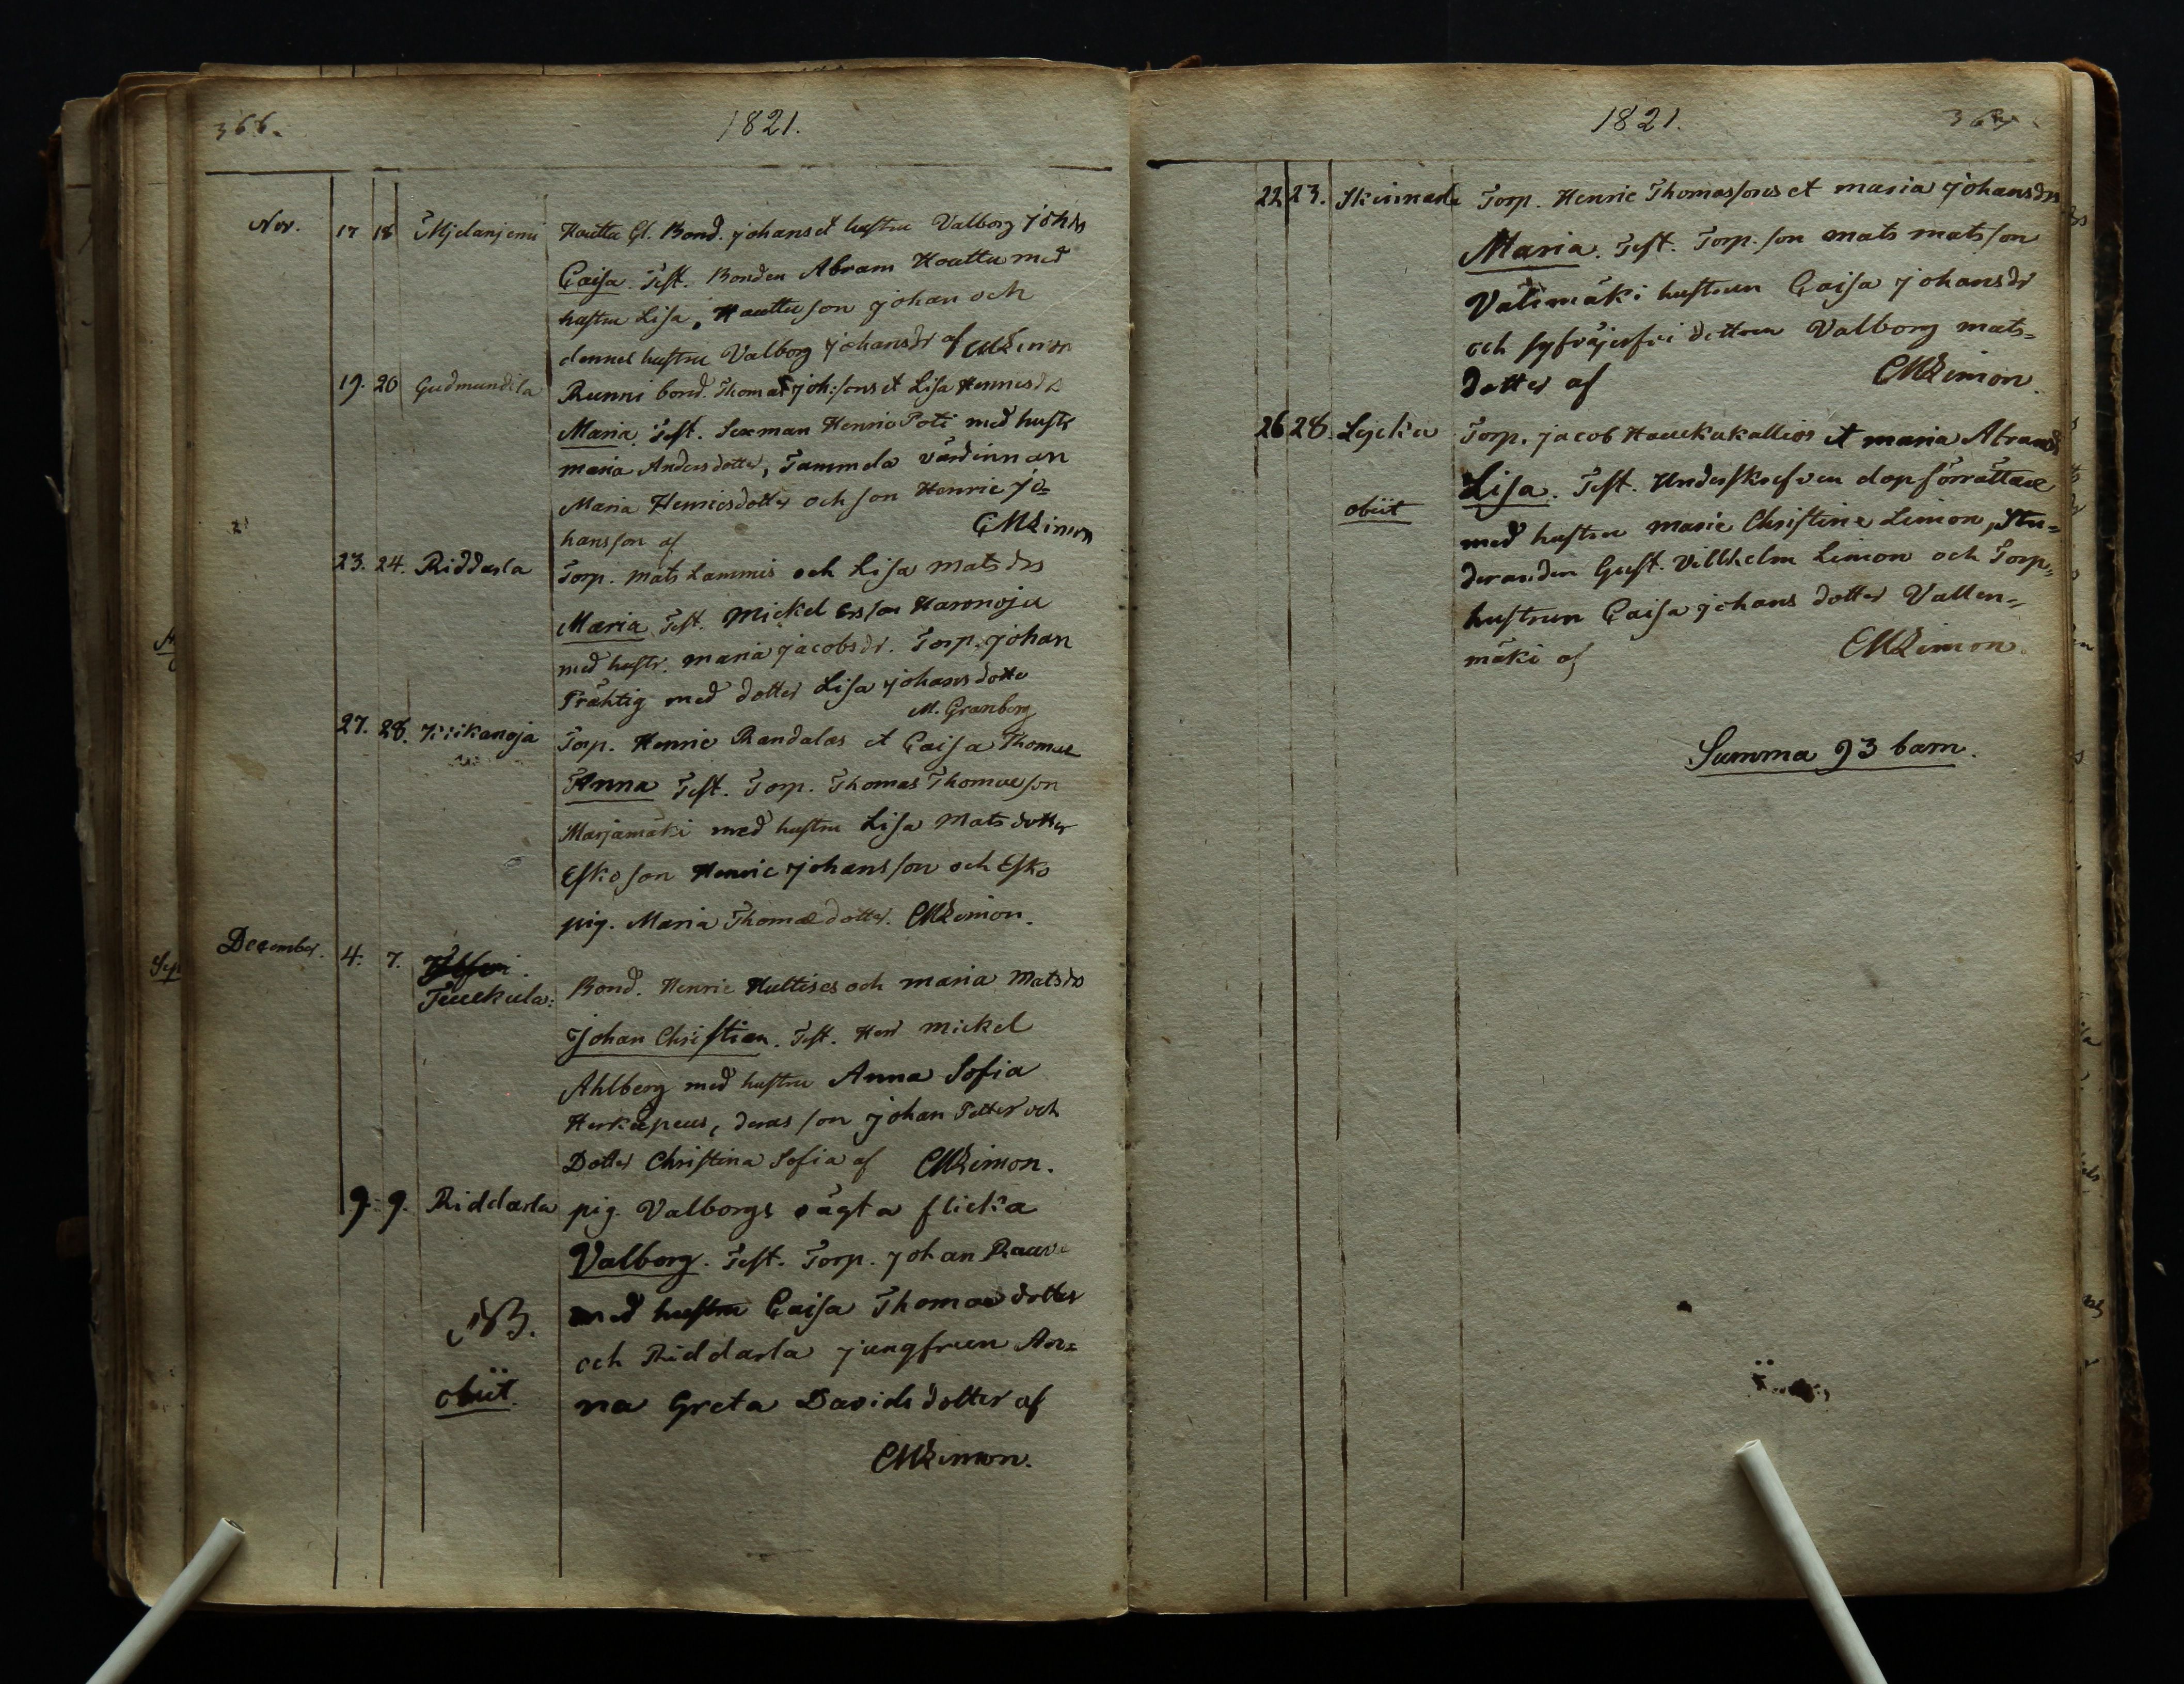 366.
1821.
Nov. 17 18 Mjelanjemi Houttu Gl. Bond. Johans et hustru Valborg Johds
Caisa. Test. Bonden Abram Houttu med
hustru Lisa, Houttu son Johan och
dennes hustru Valborg Johansdr af CMLimon
19. 20 Gudmundila Runni bond. Thomas Joh:sons et Lisa Henricsds
Maria. Test. Sexman Henric Poti med hustr
Maria Andersdotter, Tammela värdinnan
Maria Henricsdotter och son Henric Jo=
hansson af CMLimon
23. 24. Riddarla Torp. Mats Lammis och Lisa Matsdrs
Maria Test. Mickel Ersson Haronoju
med hustr. Maria Jacobsdr. Torp. Johan
Präktig med dotter Lisa Johansdotter
M. Granberg
27. 28. Kiikanoja Torp. Henric Randalas et Caisa Thomæ
Anna Test. Torp. Thomas Thomæson
Marjamäki med hustru Lisa Matsdotter
Esko son Henric Johansson och Esko
pig. Maria Thomædotter. CMLimon.
December. 4. 7.
Tuukula: Bond. Henric Hultises och Maria Matsdrs
Johan Christian. Test. Herr Mickel
Ahlberg med hustru Anna Sofia
Herkepeus, deras son Johan Petter och
Dotter Christina Sofia af CMLimon.
9. 9. Riddarla pig. Valborgs oägta flicka
Valborg. Test. Torp. Johan Rauva
NB. med hustru Caisa Thomædotter
och Riddarla jungfrun An=
obiit. na Greta Davidsdotter af
CMLimon.
1821.
367.
22 23. Skinnarla Torp. Henric Thomassons et Maria Johansdrs
Maria. Test. Torp. son Mats Matsson
Valimäki hustrun Caisa Johansdr
och dottren Valborg Mats=
dotter af CMLimon.
26 28. Lycka Torp. Jacob Haukukallios et Maria Abramds
Lisa. Test. Underskrefven dopförrättare
obiit med hustru Maria Christina Limon, Stu=
deranden Gust. Villhelm Limon och Torp=
hustrun Caisa Johansdotter Vallen=
mäki af CMLimon.
Summa 93 barn.